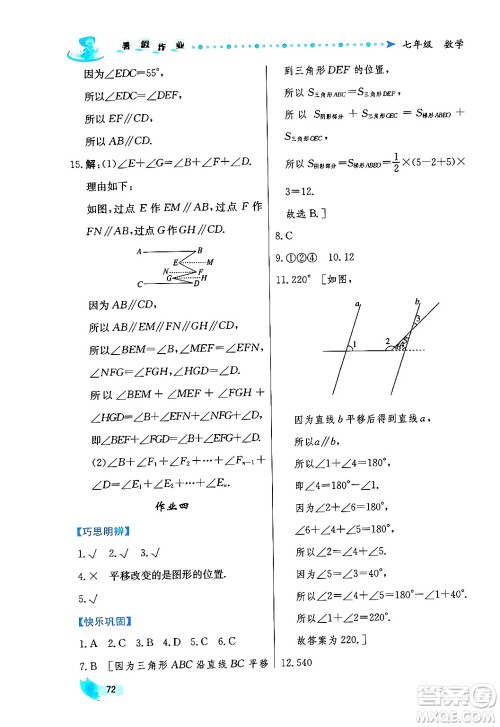 暑假作业
七年级 数学
因为∠EDC=55°,
所以∠EDC=∠DEF,
所以 EF∥CD,
所以 AB∥CD.
15.解:(1)∠E+∠G=∠B+∠F+∠D
理由如下:
如图,过点 E 作 EM∥AB,过点 F 作
FN∥AB,过点 G 作 GH∥CD,
A B
E M
N F
G H
C D
因为 AB∥CD,
所以 AB∥EM∥FN∥GH∥CD,
所以∠BEM=∠B,∠MEF=∠EFN,
∠NFG=∠FGH,∠HGD=∠D,
所以∠BEM+∠MEF+∠FGH+
∠HGD=∠B+∠EFN+∠NFG+∠D,
即∠BEF+∠FGD=∠B+∠EFG+∠D.
(2)∠B+∠F₁+∠F₂+…+∠Fₙ₋₁+
∠D=∠E₁+∠E₂+…+∠Eₙ
作业四
【巧思明辨】
1.√ 2.√ 3.√
4.× 平移改变的是图形的位置.
5.√
【快乐巩固】
1.A 2.C 3.C 4.A 5.D 6.D
7.B [因为三角形 ABC 沿直线 BC 平移
72
到三角形 DEF 的位置,
所以 S三角形ABC=S三角形DEF,
所以 S阴影部分 + S三角形OEC = S梯形ABEO
+S三角形OEC,
所以 S阴影部分=S梯形ABEO=1/2×(5-2+5)×
3=12.
故选 B.]
8.C
9.①②④ 10.12
11.220° [如图,
a b
1 2 3 4 5 6
因为直线 b 平移后得到直线 a,
所以 a∥b,
所以∠1+∠4=180°,
即∠1=180°-∠4,
∠6+∠4=∠2=180°,
所以∠6=180°-∠4,
所以∠1=∠6,
因为∠5=∠3=40°,
所以∠1+∠2+∠3=∠6+∠2+∠5=
180°+40°=220°.
故答案为 220.]
12.540